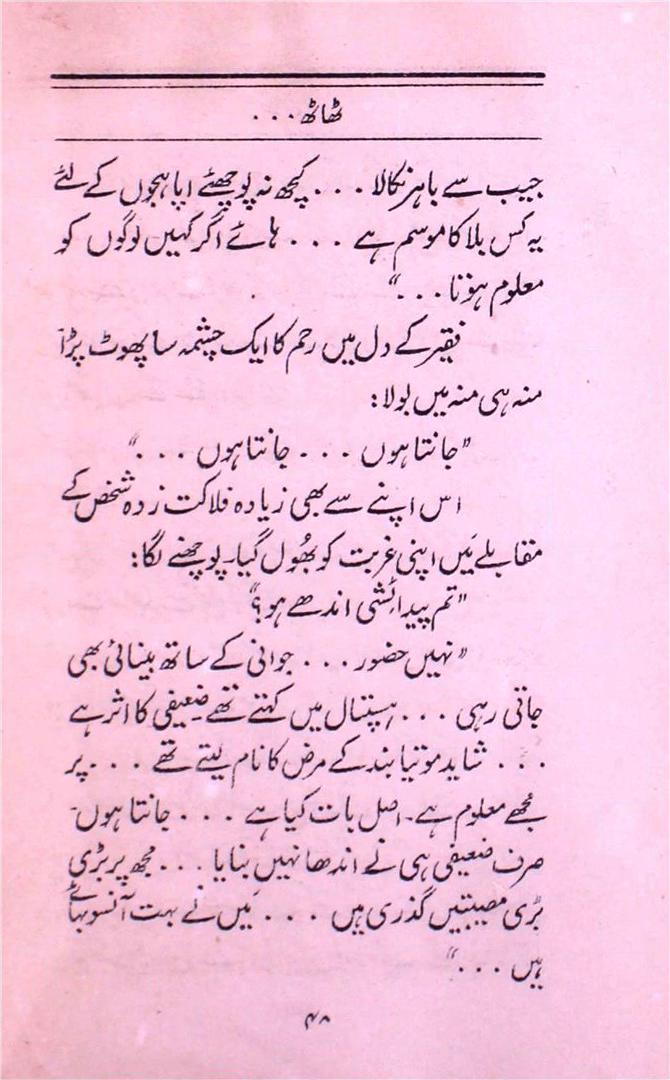 ٹھاٹھ...
جیب سے باہر نکالا... کچھ نہ پوچھئے اپاہجوں کے لئے
یہ کس بلا کا موسم ہے... ہائے اگر کہیں لوگوں کو
معلوم ہوتا..."
فقیر کے دل میں رحم کا ایک چشمہ سا پھوٹ پڑا۔
منہ ہی منہ میں بولا:
"جانتا ہوں... جانتا ہوں..."
اس اپنے سے بھی زیادہ فلاکت زدہ شخص کے
مقابلے میں اپنی غربت کو بھُول گیا۔ پوچھنے لگا:
"تم پیدائشی اندھے ہو؟"
"نہیں حضور... جوانی کے ساتھ بینائی بھی
جاتی رہی... ہسپتال میں کہتے تھے۔ ضعیفی کا اثر ہے
... شاید موتیا بند کے مرض کا نام لیتے تھے... پر
مجُھے معلوم ہے۔ اصل بات کیا ہے... جانتا ہوں۔
صرف ضعیفی ہی نے اندھا نہیں بنایا... مجھ پر بڑی
بڑی مصیبتیں گذری ہیں... مَیں نے بہت آنسو بہائے
ہیں..."
۴۸